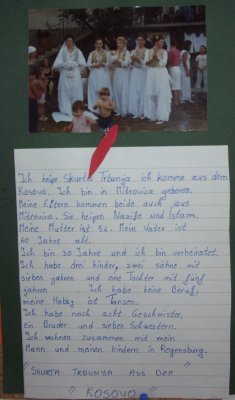 Ich heiße Skurta Trbunja ich komme aus dem
Kosovo. Ich bin in Mitrovica geboren.
Meine Eltern kommen beide auch aus
Mitrovica. Sie heißen Nazife und Islam.
Meine Mutter ist 54. Mein Vater ist
60 Jahre alt.
Ich bin 30 Jahre und ich bin verheiratet.
Ich habe drei kinder, zwei söhne mit
sieben jahren und eine Tochter mit fünf
jahren. Ich habe keine Beruf,
meine Hobby ist Tanzen.
Ich habe noch acht Geschwister,
ein Bruder und sieben Schwestern.
Ich wohnen zusammes mit mein
Mann und meinen kindern in Regensburg.
"SKURTA TRBUNJA AUS DEM
"KOSOVO"